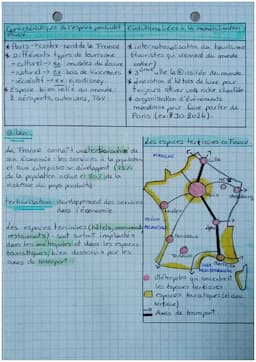 Caractéristiques de l'espace productif
Evolutions liées à la mondialisation
* Paris → centre-nord de la France
* Différents types de tourisme
- culturel → ex: musées du Louvre
- naturel → ex: bois de Vincennes
- récréatif → ex: Disneyland
* Espace bien relié au monde
aéroports, autoroutes, TGV
* internationalisation du tourisme
(touristes qui viennent du monde
entier)
* 3ème ville la visitée du monde
* création d'hôtels de luxe pour
toujours attirer une riche clientèle
* organisation d'événements
mondiaux pour faire parler de
Paris (ex: JO 2024).
Bilan:
La France connaît une tertiarisation de
son économie: les services à la population
et aux entreprises se développent (75%
de la population active et 80% de la
richesse du pays produite).
tertiarisation: développement des services
dans l'économie.
Les espaces tertiaires (hôtels,
restaurants) - sont surtout implantés
dans les métropoles et dans les espaces
touristiques, bien desservis par les
axes de transport.
Les espaces tertiaires en France
MANCHE
Lille
Paris
Lyon
Bordeaux
Toulouse
Nice
MER MÉDITERRANÉE
Métropoles qui concentrent
les espaces tertiaires
espaces touristiques (et donc
tertiaires)
Axes de transport